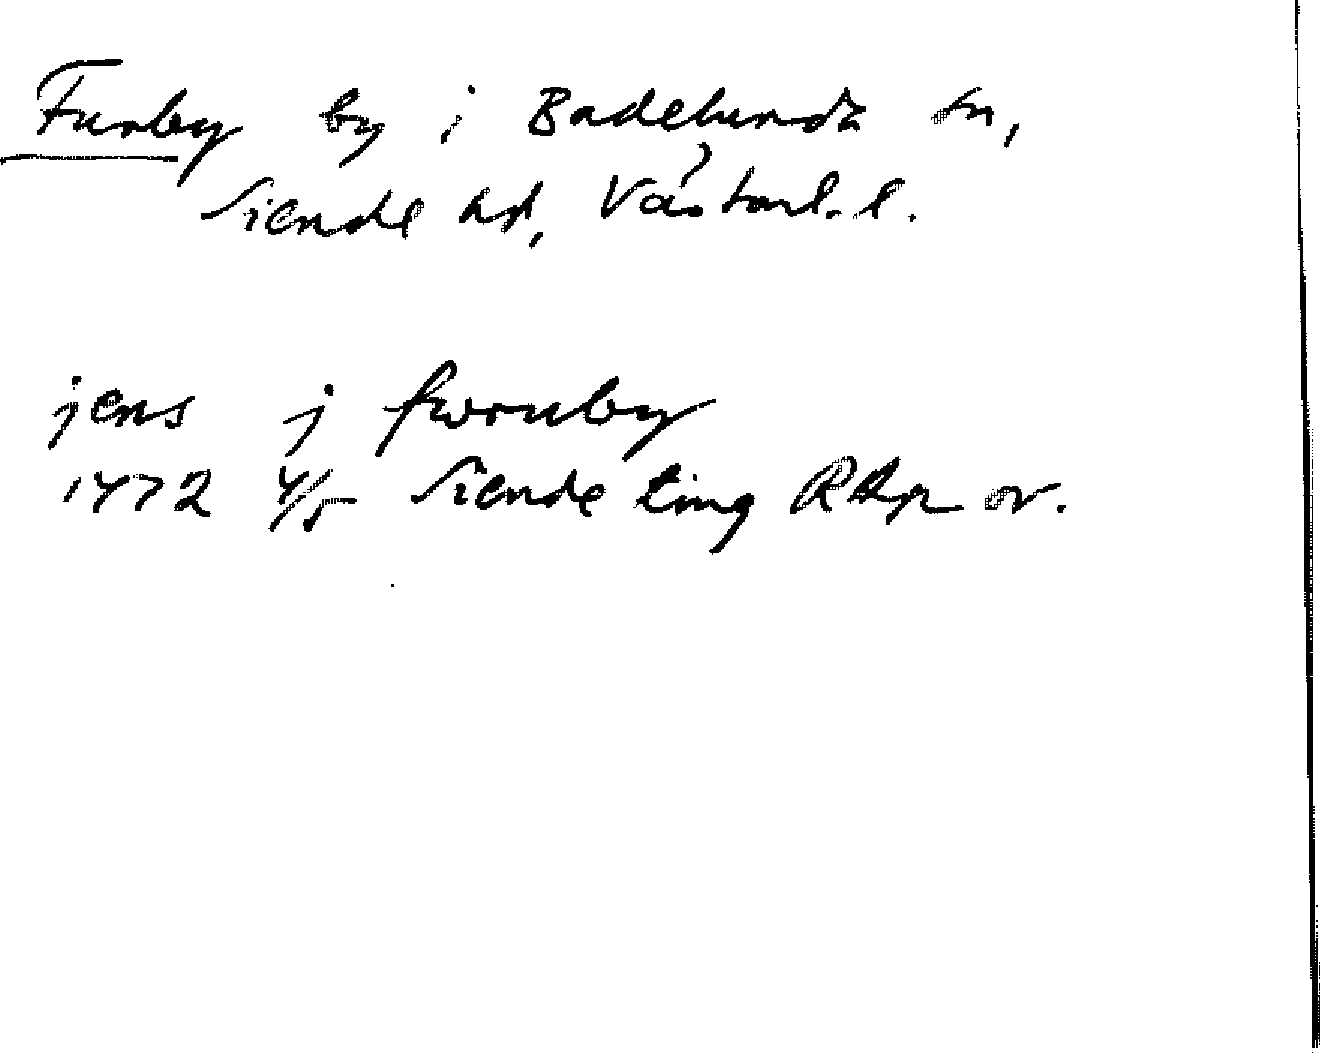 Furby by i Badelunda sn,
Siende hd, Västml. l.
jens j fwrnby
1472 4/5 Siende ting RAp or.